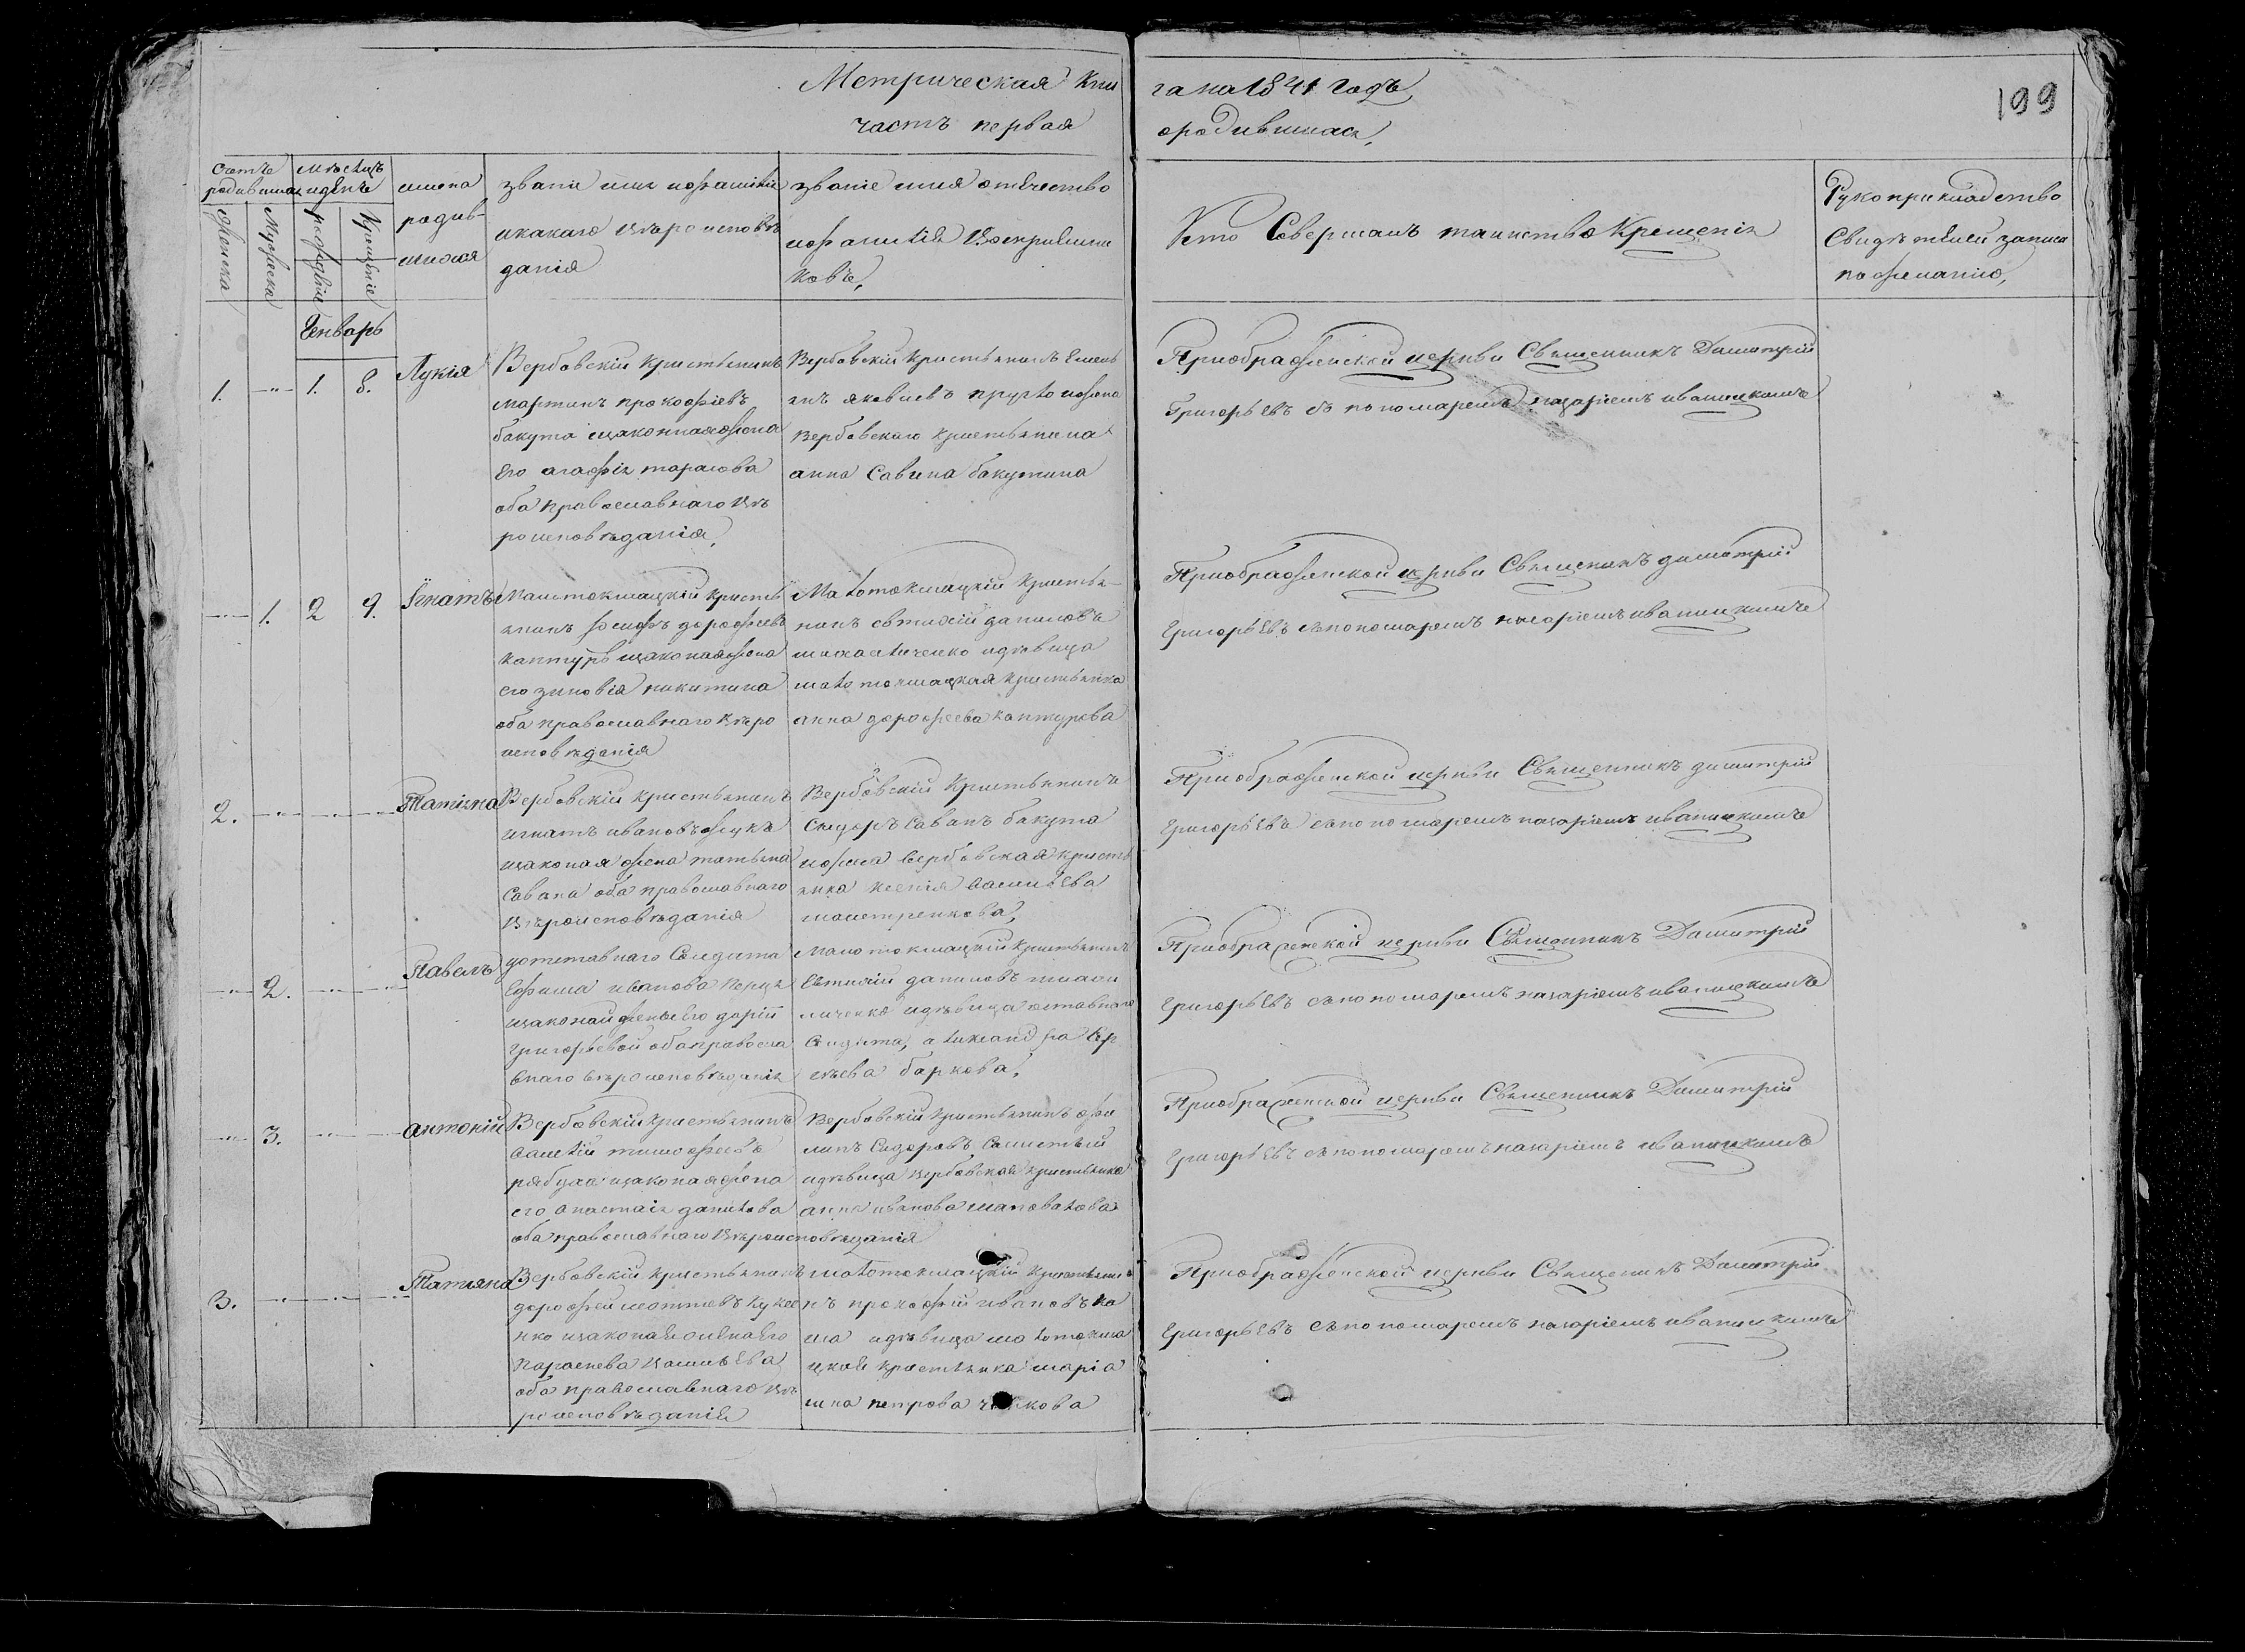 Метрическая Кни
га на 1841 Годъ,
199
часть первая
ородившихся,
Счетъ
родившихъ
мѣсяцъ
иденъ
Женска
Мужеска
рожденіе
Крещеніе
имена
родив-
шихся
званіе имя ифамиліе
икакаго вѣроисповѣ
данія
званіе имя отечество
ифамилія Воспріемни
ковъ,
Кто Совершалъ таинство Крещенія
Рукоприкладство
Свидѣтелей записи
пожеланію,
Генварь
1.
1.
8.
Лукія
Вербовскій Крестьянинъ
мартинъ прокофіевъ
бакута изаконнаяжена
Его агафія тарасова
оба православнаго вѣ
роисповѣданія,
Вербовскій Крестьянинъ Емель
янъ яковлевъ ижена
вербовскаго крестьянина
анна Савина бакутина
Преображенской церкви Священникъ Димитрій
Григорьевъ съ пономаремъ назаріемъ иваницкимъ
1.
2
9.
Игнатъ
Малотокмацкій кресть
янинъ іосифъ дорофеевъ
каптуръ изаконаяжена
его зиновія никитина
оба православнаго вѣро
исповѣданія
Малотокмацкій Крестья-
нинъ евтихій даниловъ
идѣвица
малотокмацкая крестьянка
анна дорофеева каптурова
Преображенской церкви Священникъ димитрій
Григорьевъ съпономаремъ назаріемъ иваницкимъ
2.
Татіяна
Вербовскій крестьянинъ
игнатъ ивановъ жукъ
изаконая жена татьяна
Савина оба православнаго
вѣроисповѣданія
Вербовскій Крестьянинъ
Сидоръ Савинъ бакута
ижена вербовская кресть
янка ксенія василіева
Преображенской церкви Священникъ димитрій
Григорьевъ съпономаремъ назаріемъ иваницкимъ
2.
Павелъ
отставнаго Солдата
Ефима иванова
изаконой жены его даріи
Григорьевой оба правосла
внаго вѣроисповѣданія
малотокмацкій крестьянинъ
Евтихій даниловъ
идѣвица отставнаго
Солдата, александра Сер
гѣева баркова,
Преображенской церкви Священникъ Димитрій
Григорьевъ съпономаремъ назаріемъ иваницкимъ
3.
антоній
Вербовскій крестьянинъ
василій тимофеевъ
изаконаяжена
его анастасія данилова
оба православнаго вѣроисповѣданія
Вербовскій крестьянинъ фи
липъ Сидоровъ
идѣвица вербовская крестьянка
анна иванова шаповалова
Преображенской церкви Священникъ Димитрій
Григорьевъ съпономаремъ назаріемъ иваницкимъ
3.
Татияна
Вербовскій крестьянинъ
дорофей
нко изаконая жена его
параскева васильева
оба православнаго вѣ
роисповѣданія
малотокмацкій крестьяни
нъ прокофій ивановъ
идѣвица малотокма
цкая крестьянка марія
петрова
Преображенской церкви Священникъ Димитрій
Григорьевъ съпономаремъ назаріемъ иваницкимъ